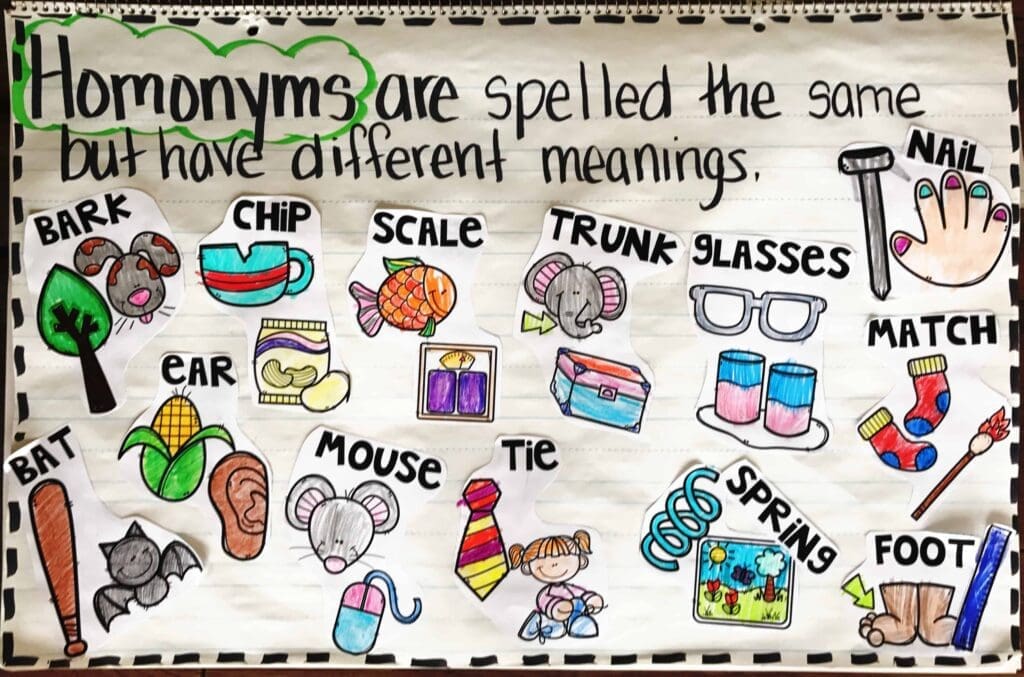 Homonyms are spelled the same
but have different meanings.
NAiL
BARK
CHiP
SCALE
TRUNK
glASSES
MATCH
eAR
BAT
MOUSE
Tie
SPRiNg
FOOT